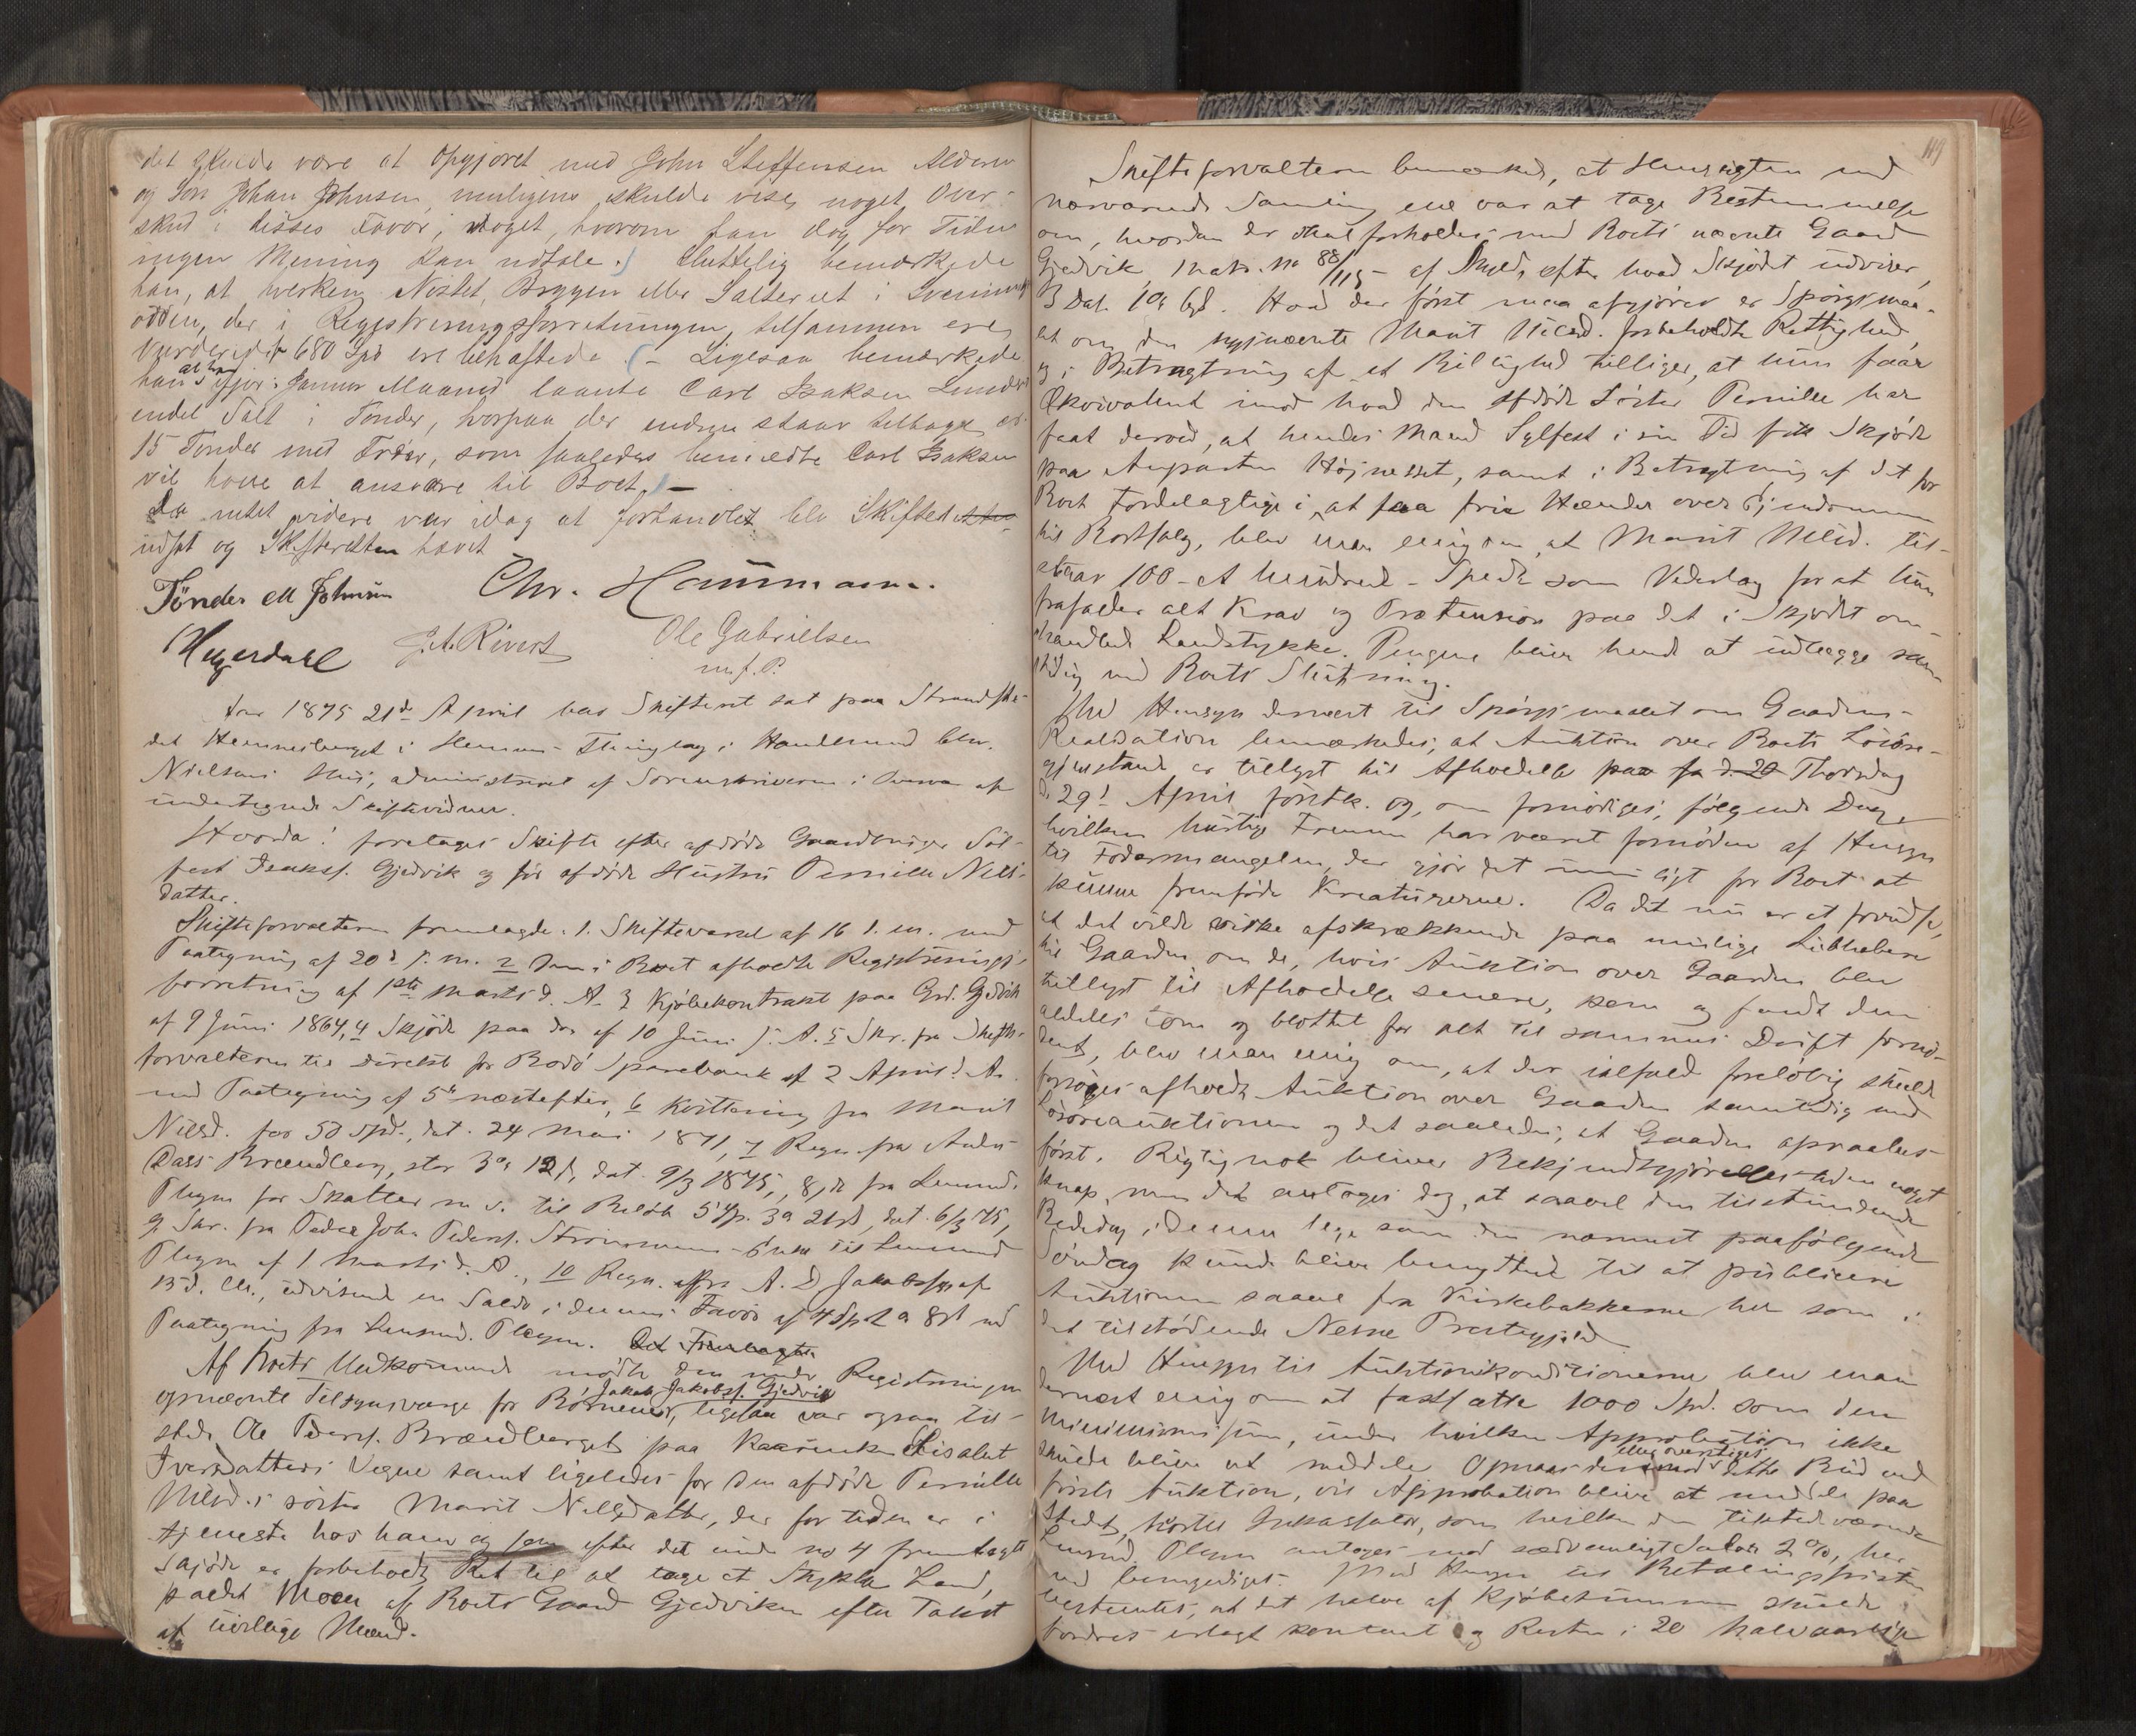 det skulde være at Opgjøret med John Steffensen Alderen
og Søn Johan Johnsen, muligens skulde vise noget Over-
skud i disses Favør, noget, hvorom han dog for Tiden
ingen Mening kan udtale. Sluttelig bemærkede
han, at hverken Nøstet, Bryggen eller Salteriet i
odden, der i Registreringsforretningen tilsammen ere
Vurderede til 680 Spd ere behæftede. - Ligesaa bemærkede
han at han ifjor i Januar Maaned laante Carl Isaksen
endel Salt i Tønder, hvorpaa der endnu staar tilbage
15 Tønder met Træer, som saaledes bemeldte Carl Isaksen
vil have at ansvare til Boet. -
Da intet videre var idag at forhandlet blev Skiftet
udsat og Skifteretten hævet
Tønder M Johnsen Chr. Hammann.
J. A. Rivert Ole Gabrielsen
m. f. P.
Aar 1875 21de April var Skifteret sat paa Strandste-
det Hemnesberget i Hemnes Thinglag i Handelsmand
Nielsens Hus, administreret af Sorenskriveren i Overvær af
undertegnede Skiftevidner.
Hvorda! foretoges Skifte efter afdøde Gaardbruger Søl-
fest Isaks. Gjedvik og før afdøde Hustru Pernille Niels-
datter.
Skifteforvalteren fremlagde: 1. Skiftevarsel af 16 d. m. med
Paategning af 20d s. m. 2 Den i Boet afholdte Registrerings-
forretning af 1ste Marts d. A. 3 Kjøbekontrakt paa Grd. Gjedvik
af 9 Juni 1864, 4 Skjøde paa do af 10 Juni s. A. 5 Skr. fra Skifte-
forvalteren til Direkt. for Bodø Sparebank af 2 April d. A.
med Paategning af 5te næstefter, 6 Kvittering fra Marit
Nielsd. for 50 Spd., dat. 24 Mai 1871, 7 Regn. fra Anders
Dass Brændberg, stor 3 Ort 12 s, dat. 9/3 1875, 8, do fra Lensmd.
Plegm for Skatter m. v. til Beløb 5 Sp. 3 Ort 21 s, dat. 6/3 75,
9 Skr. fra Peder Joh. Peders. til Lensmand
Plegm af 1 Marts d. A., 10 Regn. fra A. D Jakobsen af
13 d. M., udvisende en Saldo i dennes Favør af 4 Sp 2 Ort 8 s med
Paategning fra Lensmd. Plegm.
Af Boets Vedkommende mødte den under Registreringen
opnævnte Tilsynsværge for Børnene Jakob Jakobs. Gjedvik, ligesaa var ogsaa til-
stede Ole Peders. Brændberget paa Lisabet
Iversdatters Vegne samt ligeledes for den afdøde Pernille
Nilsd.s søster Marit Nilsdatter, der for tiden er i
tjeneste hos ham og som efter det under no 4 fremlagte
Skjøde er forbeholdt Ret til at tage et Stykke Land,
kaldt Moen af Boets Gaard Gjedviken efter Takst
af uvillige Mænd.
119
Skifteforvalteren bemærked, at Hensigten med
nærværende Samling ene var at tage Bestemmelse
om, hvordan der skal forholdes med Boets nævnte Gaard
Gjedvik, Matr. No 88/115 af Skyld, efter hvad Skjødet udviser,
3 Dal. 1 Ort 6 s. Hvad der først maa afgjøres er Spørgsmaa-
et om den nysnævnte Marit Nilsd. forbeholdte Rettighed,
og i Betragtning af et Billighed tilliger, at hun faar
Ækvivalent imod hvad den afdøde Søster Pernille har
faat derved, at hendes Mand Sylfest i sin Tid fik Skjøde
paa Anparten Højnesset, samt i Betragtning af det for
Boet Fordelagtige i, at faa frie Hænder over Ejendommen
til Bortsalg, blev man enig om, at Marit Nilsd. til-
staar 100 - et hundrede - Spedlr som Vederlag for at hun
frafalder alt Krav og Prætension paa det i Skjødet om-
handlede Landstykke. Pengene bliver hende at udlægge sam-
tidig med Boets Slutning.
Med Hensyn dernæst til Spørgsmaalet om Gaardens
Realisation bemærkedes, at Auktion over Boets Løsøre-
gjenstande er tillyst til Afholdelse paa Thorsdag
d. 29d April førstk. og, om fornødiges, følgende Dag,
hvilken hurtige Fremme har været fornøden af Hensyn
til Fodermangelen, der gjør det umuligt for Boet at
kunne fremføde Kreaturerne. Da det nu er at forudse,
at det vilde virke afskrækkende paa mulige Liebhabere
til Gaarden om de, hvis Auktion over Gaarden blev
tillyst til Afholdelse senere, kom og fandt den
aldeles tom og blottet for alt til sammes Drift fornø-
dent, blev man enig om, at der ialfald foreløbig skulde
forsøges afholdt Auktion over Gaarden samtidig med
Løsøreauktionen og det saaledes, at Gaarden opraabes
først. Rigtignok bliver Bekjendtgjørelses-tiden noget
knap, men det antages dog, at saavel den tilstundende
Bededag i Denne Uge som den nærmest paafølgende
Søndag kunde blive benyttede til at publicere
Auktionen saavel fra Kirkebakkerne her som i
det tilstødende Nesne Præstegjeld
Med Hensyn til Auktionskonditionerne blev man
dernæst enig om at fastsætte 1000 Spd. som den
Minimumssum, under hvilken Approbation ikke
skulde blive at meddele. Opnaaes derimod eller overstiges dette Bud ved
første Auktion, vil Approbation blive at meddele paa
Stedet, Inkassator, som hvilken den tilstedeværende
Lensmd. Plegm antoges mod sædvanligt Salær 2 %, her-
med bemyndiges. Med Hensyn til Betalingsfristen
bestemtes, at det halve af Kjøbesummen skulde
fordres erlagt kontant og Resten i 20 halvaarlige